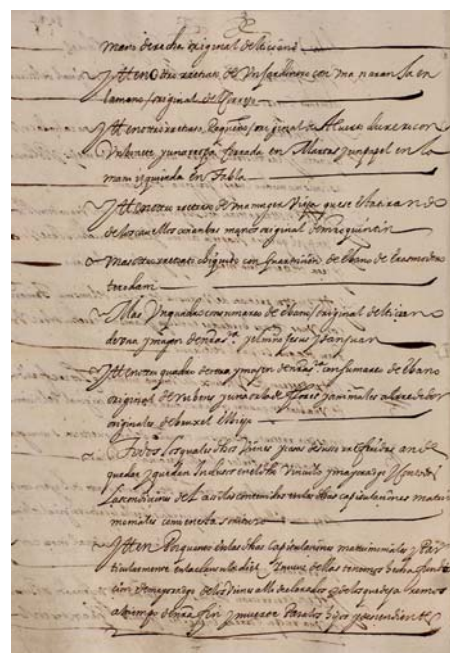 mano derecha original de ticiano
Ytten otro retrato de Un Jardinero con Una naran Ja en
la mano original de
Ytten otro retrato Pequeño original de Alverto durero con
Un bonete y una ropa forrada en Martas y un papel en la
mano izquierda en tabla
Ytten otro retrato de Una muger Vieja que se esta tirando
de los cavellos con anbas manos original de mro quintin
Mas otro retrato chiquito con guarniçion de Ebano de Erasmo de
terodam
Mas Un quadro con su marco de Ebano original de ticiano
de una ymagen de nra sra y el niño Jesus y San Juan
Ytten otro quadro de una ymagen de nra sra con su marco de Ebano
original de rubens y una de flores y animales alrededor
originales de
Todos los quales dhos Vienes y cassas de susso referidas an de
quedar y quedan Inclusos en el dho Vinculo y mayorazgo
las condiciones del contenidas en las dhas capitulaciones matri
moniales como en esta scriptura
Ytten Por quanto en las dhas Capitulaciones matrimoniales y Par
ticularmente en la clausula diez y nueve dellas tenemos hecha funda
cion de mayorazgo de los Vienes alli declarados y de los que dexaremos
al tiempo de nra fin y muerte Para los hijos y decendientes